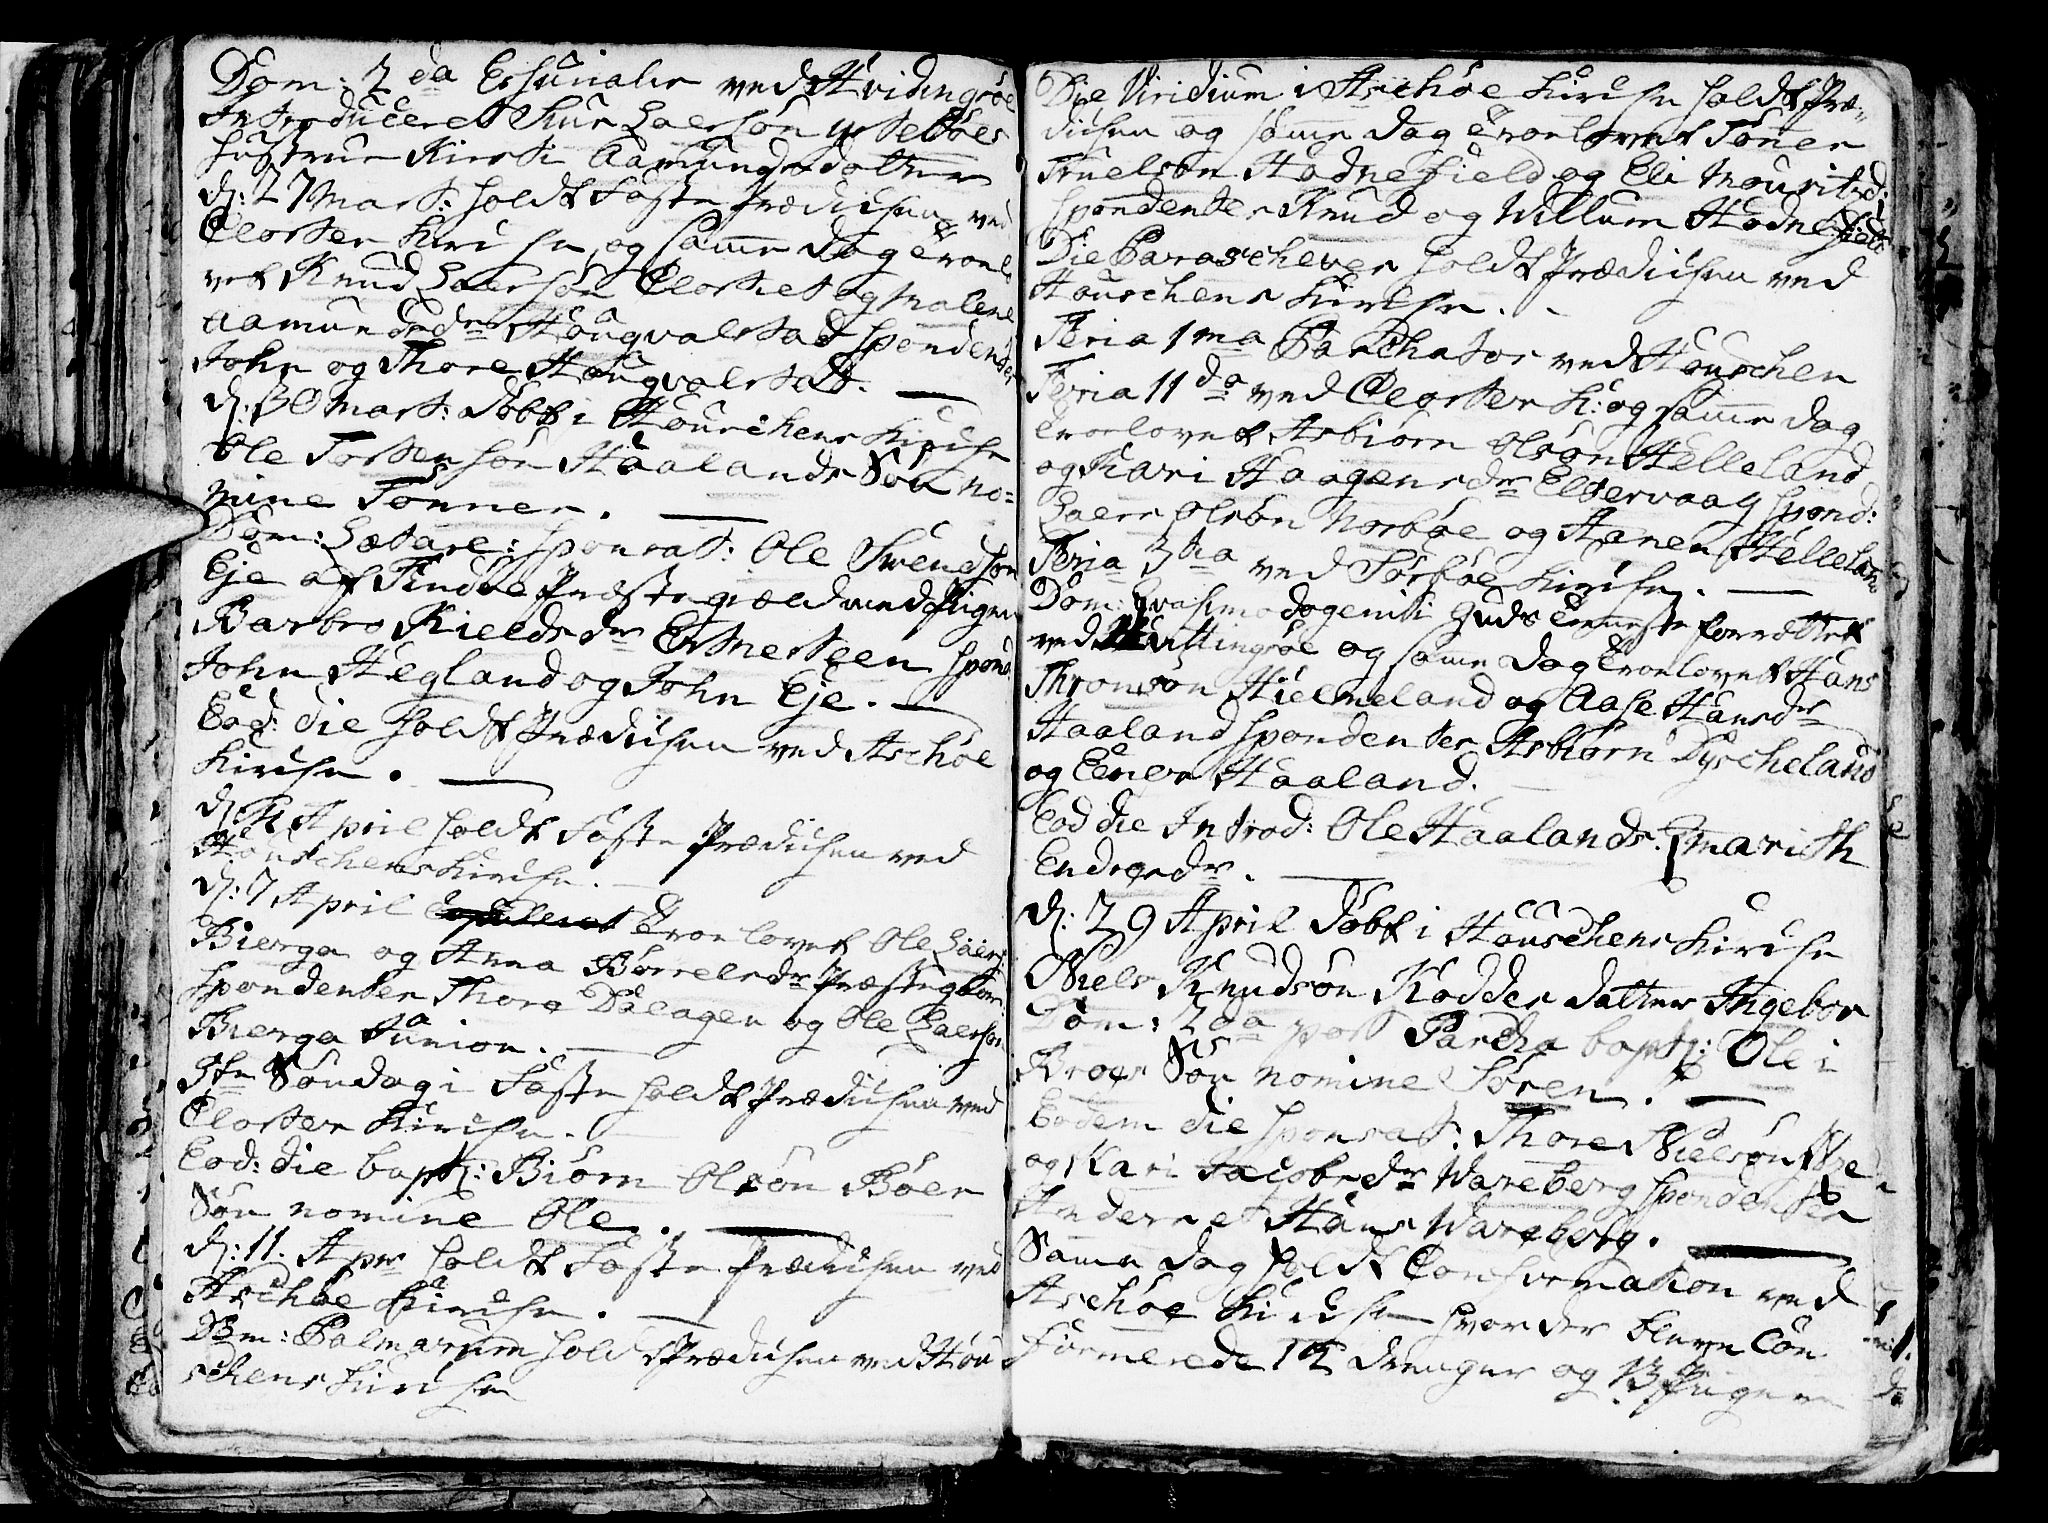 Dom: 2da Esurialis ved Hvidingsöe
Introduceret Siur Laersön
Hustrue Kirsti Aamundsdotter
d: 27 Mart: holdt Faste Prædichen ved
Closter Kirche, og samme dag troel
vet Knud Laersön Closter og Malene
Aamundsdr Hougvalstad Spondenter
John og Thore Hougvalstad.
d: 30 Mart: Döbt i Houschens Kirche
Ole Tostensön Haalands Sön no=
mine Tönner.
Dom: Lætare: Sponsat: Ole Svendsön
Eje af Findöe Præstegield med Pigen
Barbro Kieldsdr Estensteen Spond:
John Hegland og John Eje.
Eod: die holdt Prædichen ved Aschöe
Kirche.
d: 4 April holdt Faste Prædichen ved
Houschens Kirche.
d: 7 April Troelovet Ole Laers:
Bierga og Anna Börrelsdr Præstegaar
Spondenter Thore Dalagen og Ole Laersön
Bierga Junior.
5te Söndag i Faste holdt Prædichen ved
Closter Kirche.
Eod: die bapt: Biörn Olsön Böer
Sön nomine Ole.
d: 11. Apr holdt Faste Prædichen ved
Aschöe Kirche.
Dom: Palmarum holdt Prædichen ved Hou
schens Kirche
Die Viridium i Aschöe Kirche holdt Præ=
dichen og samme dag troelovet Tönner
Truelsön Hodnefield og Eli Mouritzd:
Spondenter Knud og Willum Hodnefield
Die Parascheves holdt Prædichen ved
Houschens Kirche.
Feria 1ma Paschatos ved Houschen
Feria 11da ved Closter K: og samme dag
troelovet Asbiörn Olsön Helleland
og Kari Haagensdr Eltervaag Spond:
Laers Olsön Norböe og Aanen Helleland
Feria 3tia ved Sörböe Kirche.
Dom: Qvasimodogeniti Guds tieneste forrettet
ved Hvittingsöe og samme dag troelovet Hans
Thronsön Hielmeland og Aase Hansdr
Haaland Spondenter Asbiörn Dyscheland
og Einer Haaland.
Eod die Introd: Ole Haalands: Q Marith
Endresdr.
d: 29 April Döbt i Houschens Kirche
Niels Knudsön Kodder datter Ingebor
Dom: 2da post Pascha bapt: Ole i
Broes Sön nomine Sören.
Eodem die Sponsat: Thore Nielsön
og Kari Jacobsdr Wareberg Spondenter
Anders et Hans Wareberg.
Samme dag holdt Confirmation ved
Aschöe Kirche hvor der bleven Con
firmerede 14 drenger og 13 Piger